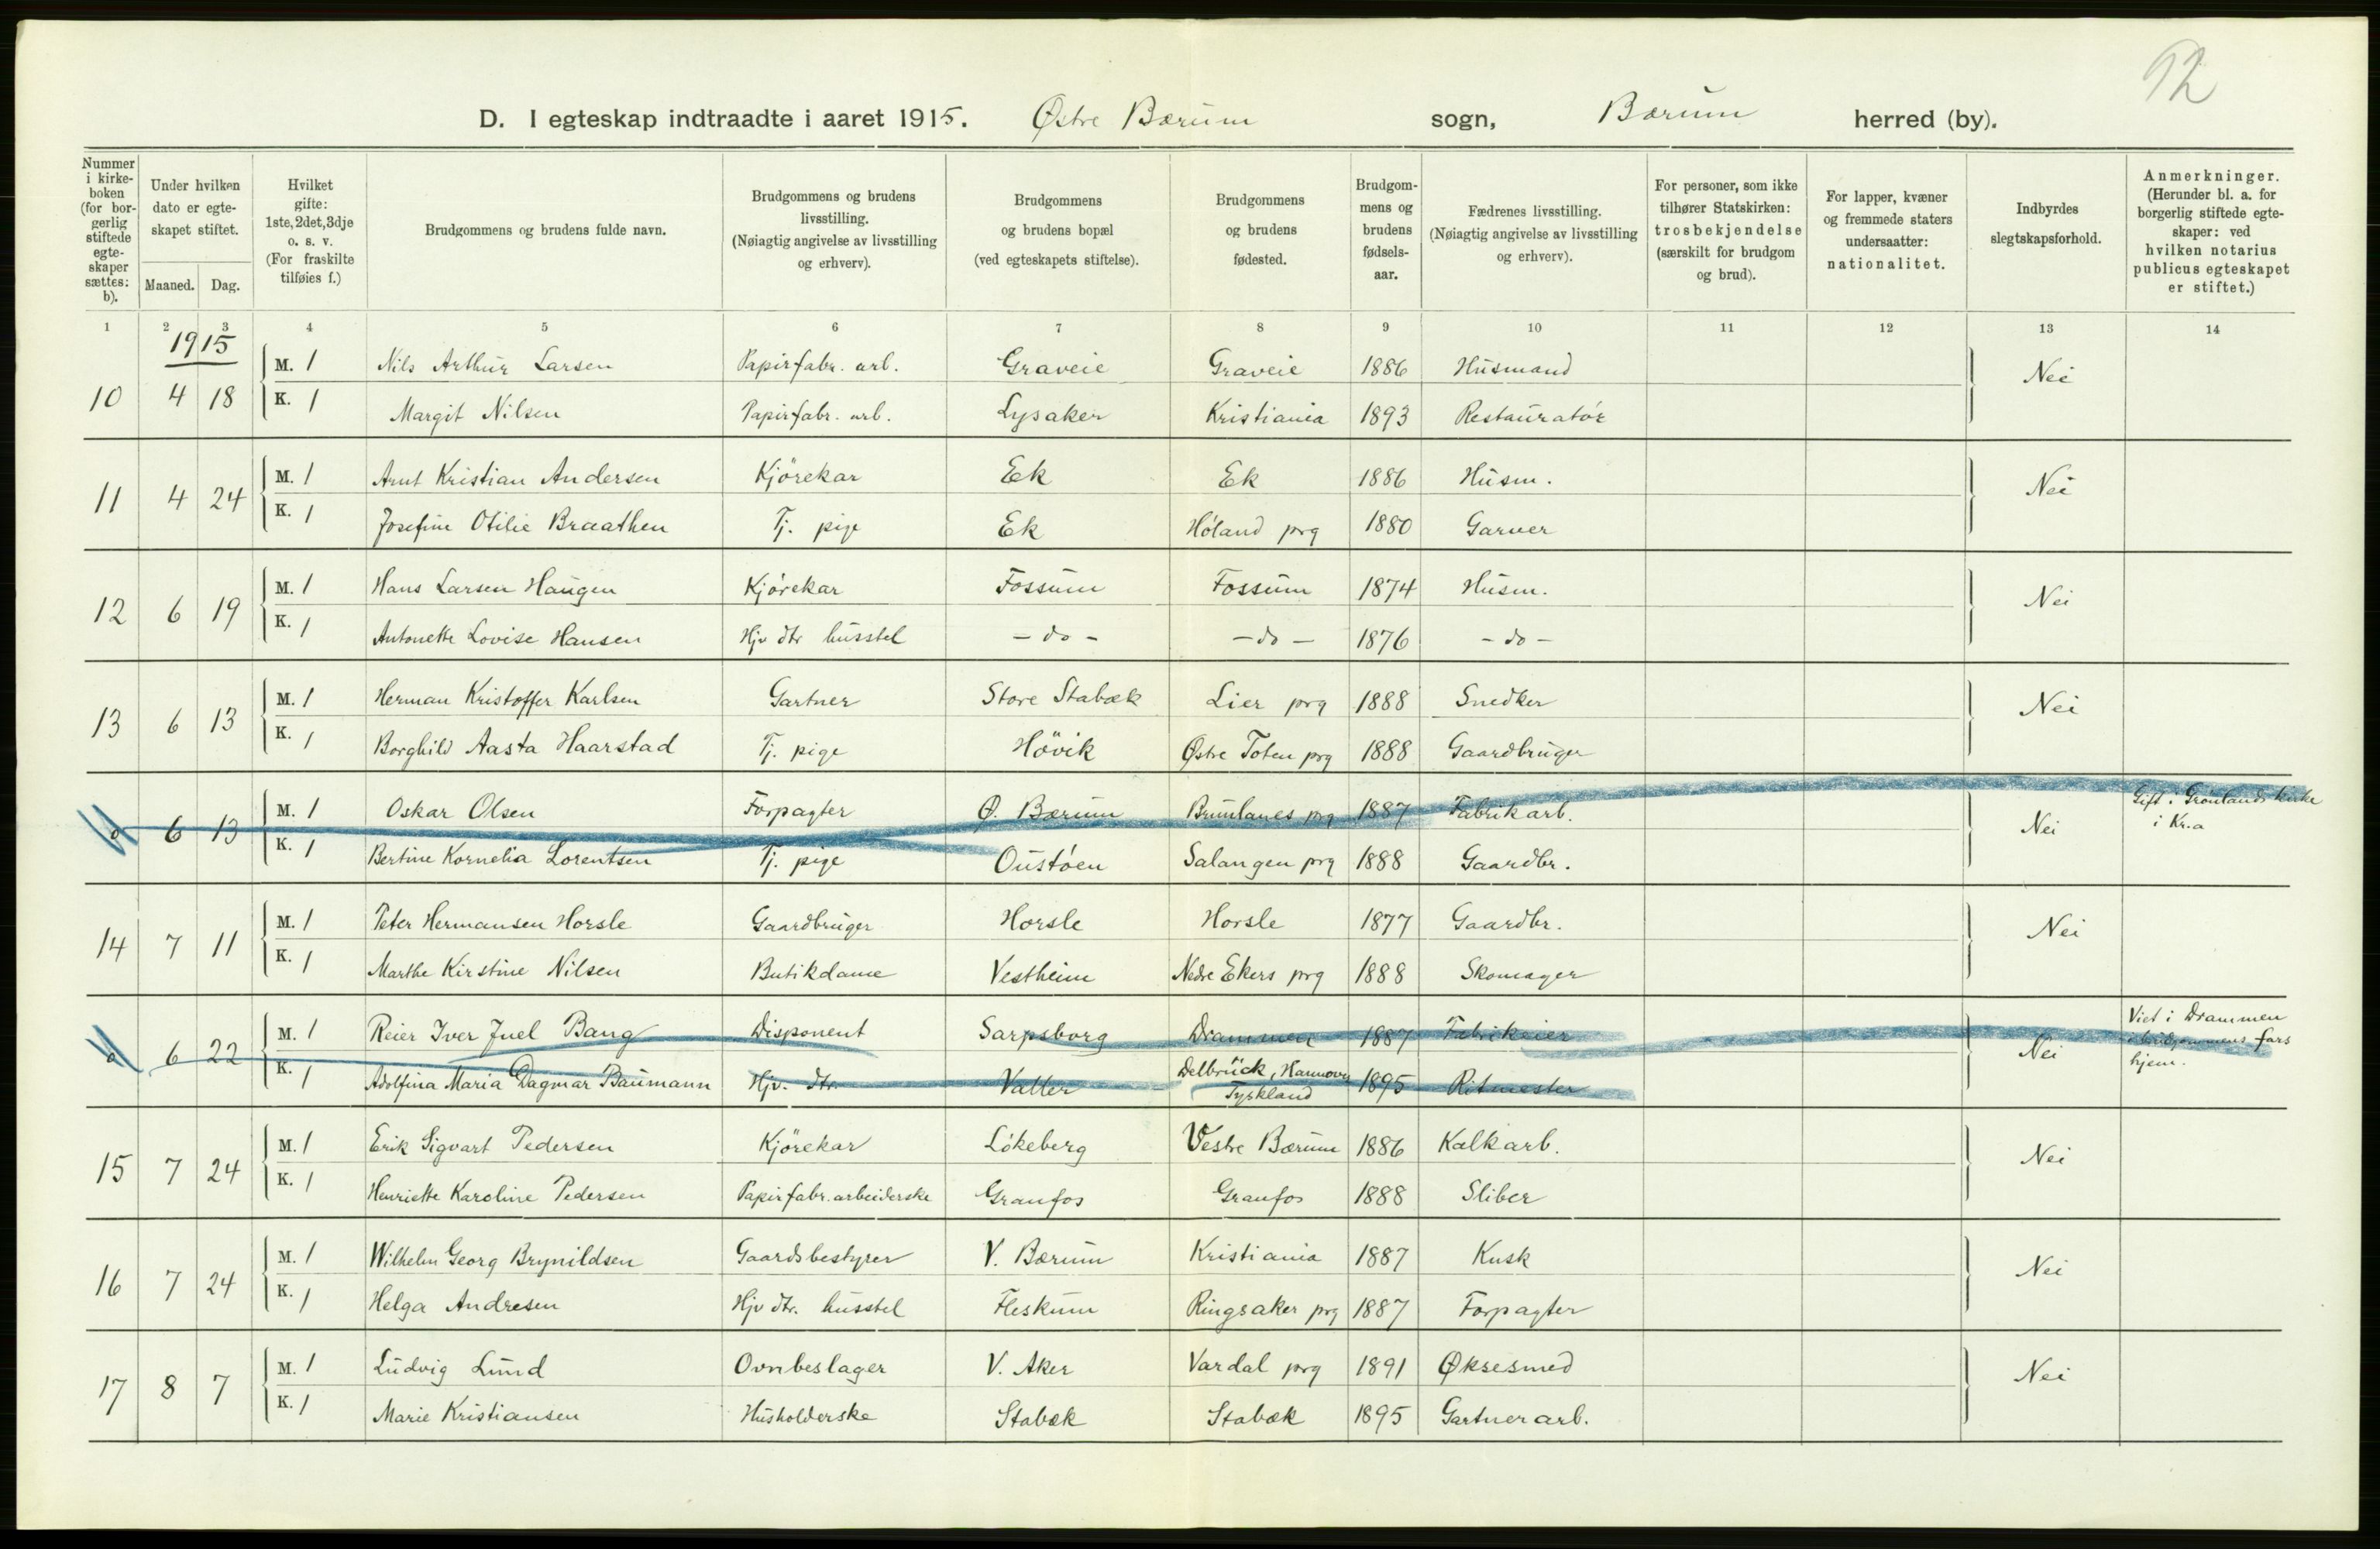 92
D. I egteskap indtraadte i aaret 1915. Østre Bærum sogn, Bærum herred (by).
Nummer i kirke-boken (for bor-gerlig stiftede egte-skaper sættes: b).
Under hvilken dato er egte-skapet stiftet.
Maaned. Dag.
Hvilket gifte: 1ste, 2det, 3dje o. s. v. (For fraskilte tilføies f.)
Brudgommens og brudens fulde navn.
Brudgommens og brudens livsstilling. (Nøiagtig angivelse av livsstilling og erhverv).
Brudgommens og brudens bopæl (ved egteskapets stiftelse).
Brudgommens og brudens fødested.
Brudgom-mens og brudens fødsels-aar.
Fædrenes livsstilling. (Nøiagtig angivelse av livsstilling og erhverv).
For personer, som ikke tilhører Statskirken: trosbekjendelse (særskilt for brudgom og brud).
For lapper, kvæner og fremmede staters undersaatter: nationalitet.
Indbyrdes slegtskapsforhold.
Anmerkninger. (Herunder bl. a. for borgerlig stiftede egte-skaper: ved hvilken notarius publicus egteskapet er stiftet.)
1 2 3 4 5 6 7 8 9 10 11 12 13 14
1915
M. 1 Nils Arthur Larsen Papirfabr. arb. Graveie Graveie 1886 Husmand
10 4 18 Nei
K. 1 Margit Nilsen Papirfabr. arb. Lysaker Kristiania 1893 Restauratør
M. 1 Arnt Kristian Andersen Kjörekar Eek Ek 1886 Husm.
11 4 24 Nei
K. 1 Josefine Otilie Braathen Tj. pige Ek Høland prg 1880 Garver
M. 1 Hans Larsen Haugen Kjørekar Fossum Fossum 1874 Husm.
12 6 19 Nei
K. 1 Antonette Lovise Hansen Hjv dtr husstel - do - - do - 1876 - do -
M. 1 Herman Kristoffer Karlsen Gartner Store Stabæk Lier prg 1888 Snedker
13 6 13 Nei
K. 1 Borghild Aasta Haarstad Tj. pige Hövik Østre Toten prg 1888 Gaardbruger
M. 1 Oskar Olsen Forpagter Ø. Bærum Brunlanes prg 1887 Fabrikarb. Gift i Grønlands kirke
6 13 Nei i Kr.a
K. 1 Bertine Kornelia Lorentsen Tj. pige Oustøen Salangen prg 1888 Gaardbr.
M. 1 Peter Hermansen Horsle Gaardbruger Horsle Horsle 1877 Gaardbr.
14 7 11 Nei
K. 1 Marthe Kirstine Nilsen Butikdame Vestheim Nedre Ekers prg 1888 Skomager
M. 1 Reier Iver Juel Bang Disponent Sarpsborg Drammen 1887 Fabrikeier Viet i Drammen
6 22 Nei i brudgommens fars
K. 1 Adolfina Maria Dagmar Baumann Hjv. dtr. Valler Delbrück, Hannover 1895 Ritmester hjem.
Tyskland
M. 1 Erik Sigvart Pedersen Kjörekar Løkeberg Vestre Bærum 1886 Kalkarb.
15 7 24 Nei
K. 1 Henriette Karoline Pedersen Papirfabr. arbeiderske Granfos Granfos 1888 Sliber
M. 1 Wilhelm Georg Brynildsen Gaardsbestyrer V. Bærum Kristiania 1887 Kusk
16 7 24 Nei
K. 1 Helga Andresen Hjv dtr. husstel Fleskum Ringsaker prg 1887 Forpagter
M. 1 Ludvig Lund Ovnbeslager V. Aker Vardal prg 1891 Øksesmed
17 8 7 Nei
K. 1 Marie Kristiansen Husholderske Stabæk Stabæk 1895 Gartnerarb.